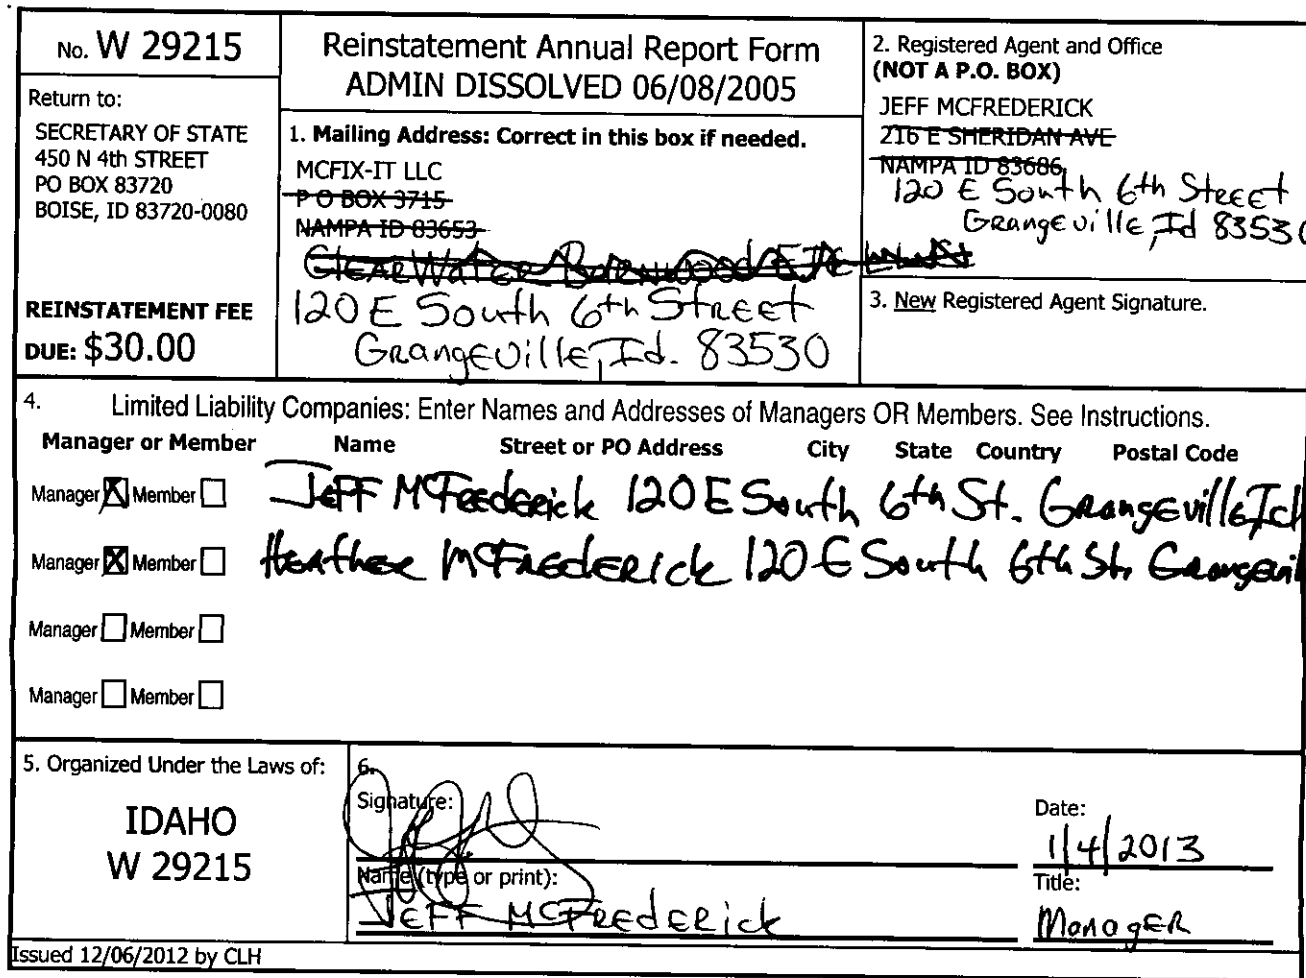 No. W 29215
Return to:
SECRETARY OF STATE
450 N 4th STREET
PO BOX 83720
BOISE, ID 83720-0080
REINSTATEMENT FEE
DUE: $30.00
Reinstatement Annual Report Form
ADMIN DISSOLVED 06/08/2005
1. Mailing Address: Correct in this box if needed.
MCFIX-IT LLC
P O BOX 3715
NAMPA ID 83653
ClearWater
120 E South 6th Street
Grangeville, Id. 83530
2. Registered Agent and Office
(NOT A P.O. BOX)
JEFF MCFREDERICK
216 E SHERIDAN AVE
NAMPA ID 83686
120 E South 6th Street
Grangeville, Id 83530
3. New Registered Agent Signature.
4. Limited Liability Companies: Enter Names and Addresses of Managers OR Members. See Instructions.
Manager or Member Name Street or PO Address City State Country Postal Code
Manager X Member Jeff McFrederick 120 E South 6th St. Grangeville Id
Manager X Member Heather McFrederick 120 E South 6th St. Grangevil
Manager Member
Manager Member
5. Organized Under the Laws of:
IDAHO
W 29215
6.
Signature:
Name (type or print):
Jeff McFrederick
Date:
1/4/2013
Title:
Manager
Issued 12/06/2012 by CLH